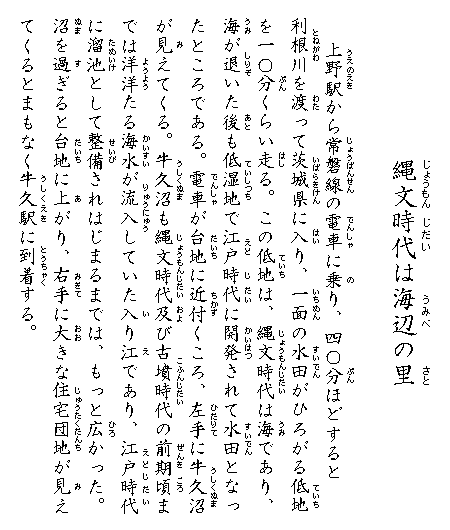 縄文時代は海辺の里
上野駅から常磐線の電車に乗り、四〇分ほどすると
利根川を渡って茨城県に入り、一面の水田がひろがる低地
を一〇分くらい走る。この低地は、縄文時代は海であり、
海が退いた後も低湿地で江戸時代に開発されて水田となっ
たところである。電車が台地に近付くころ、左手に牛久沼
が見えてくる。牛久沼も縄文時代及び古墳時代の前期頃ま
では洋洋たる海水が流入していた入り江であり、江戸時代
に溜池として整備されはじまるまでは、もっと広かった。
沼を過ぎると台地に上がり、右手に大きな住宅団地が見え
てくるとまもなく牛久駅に到着する。